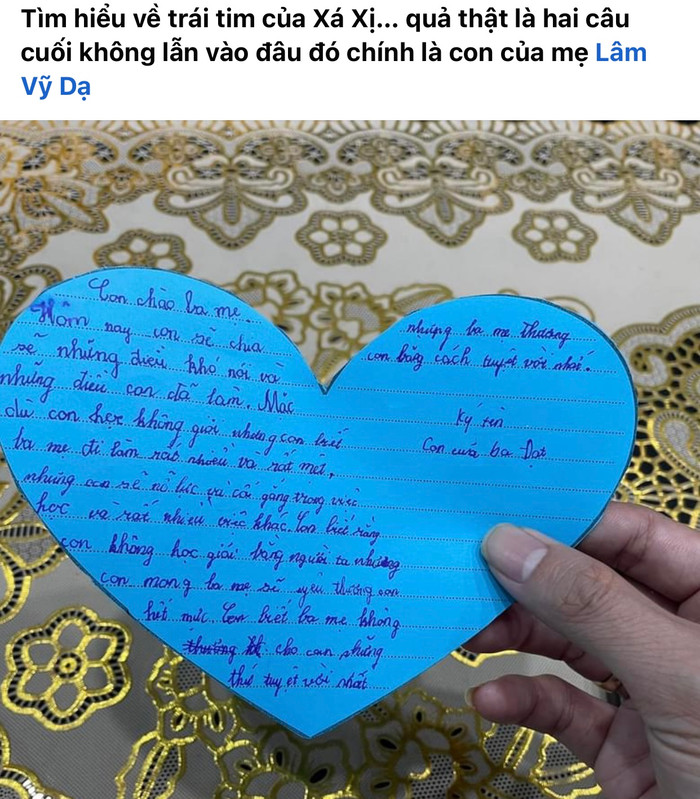 Tìm hiểu về trái tim của Xá Xị... quả thật là hai câu
cuối không lẫn vào đâu đó chính là con của mẹ Lâm
Vỹ Dạ
Con chào ba mẹ.
Hôm nay con sẽ chia
sẽ những điều khó nói và
những điều con đã làm. Mặc
dù con học không giỏi nhưng con biết
ba mẹ đi làm rất nhiều và rất mệt,
nhưng con sẽ nỗ lực và cố gắng trong việc
học và rất nhiều việc khác. Con biết rằng
con không học giỏi bằng người ta nhưng
con mong ba mẹ sẽ yêu thương con
hết mức. Con biết ba mẹ không
cho con những
thứ tuyệt vời nhất
nhưng ba mẹ thương
con bằng cách tuyệt vời nhất.
Ký tên
Con của ba Đạt